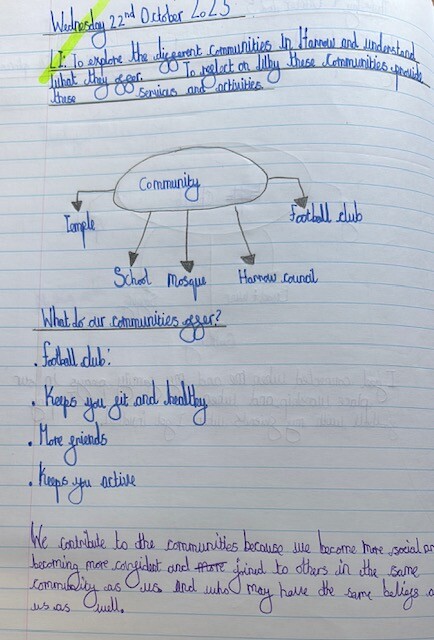 Wednesday 22nd October 2025
LI: To explore the different communities in Harrow and understand
what they offer. To reflect on why these communities provide
these services and activities.
Community
Temple
Football club
School
Mosque
Harrow council
What do our communities offer?
• Football club:
• Keeps you fit and healthy
• More friends
• Keeps you active
We contribute to the communities because we become more social an
becoming more confident and more joined to others in the same
community as us and who may have the same beliefs a
us as well.